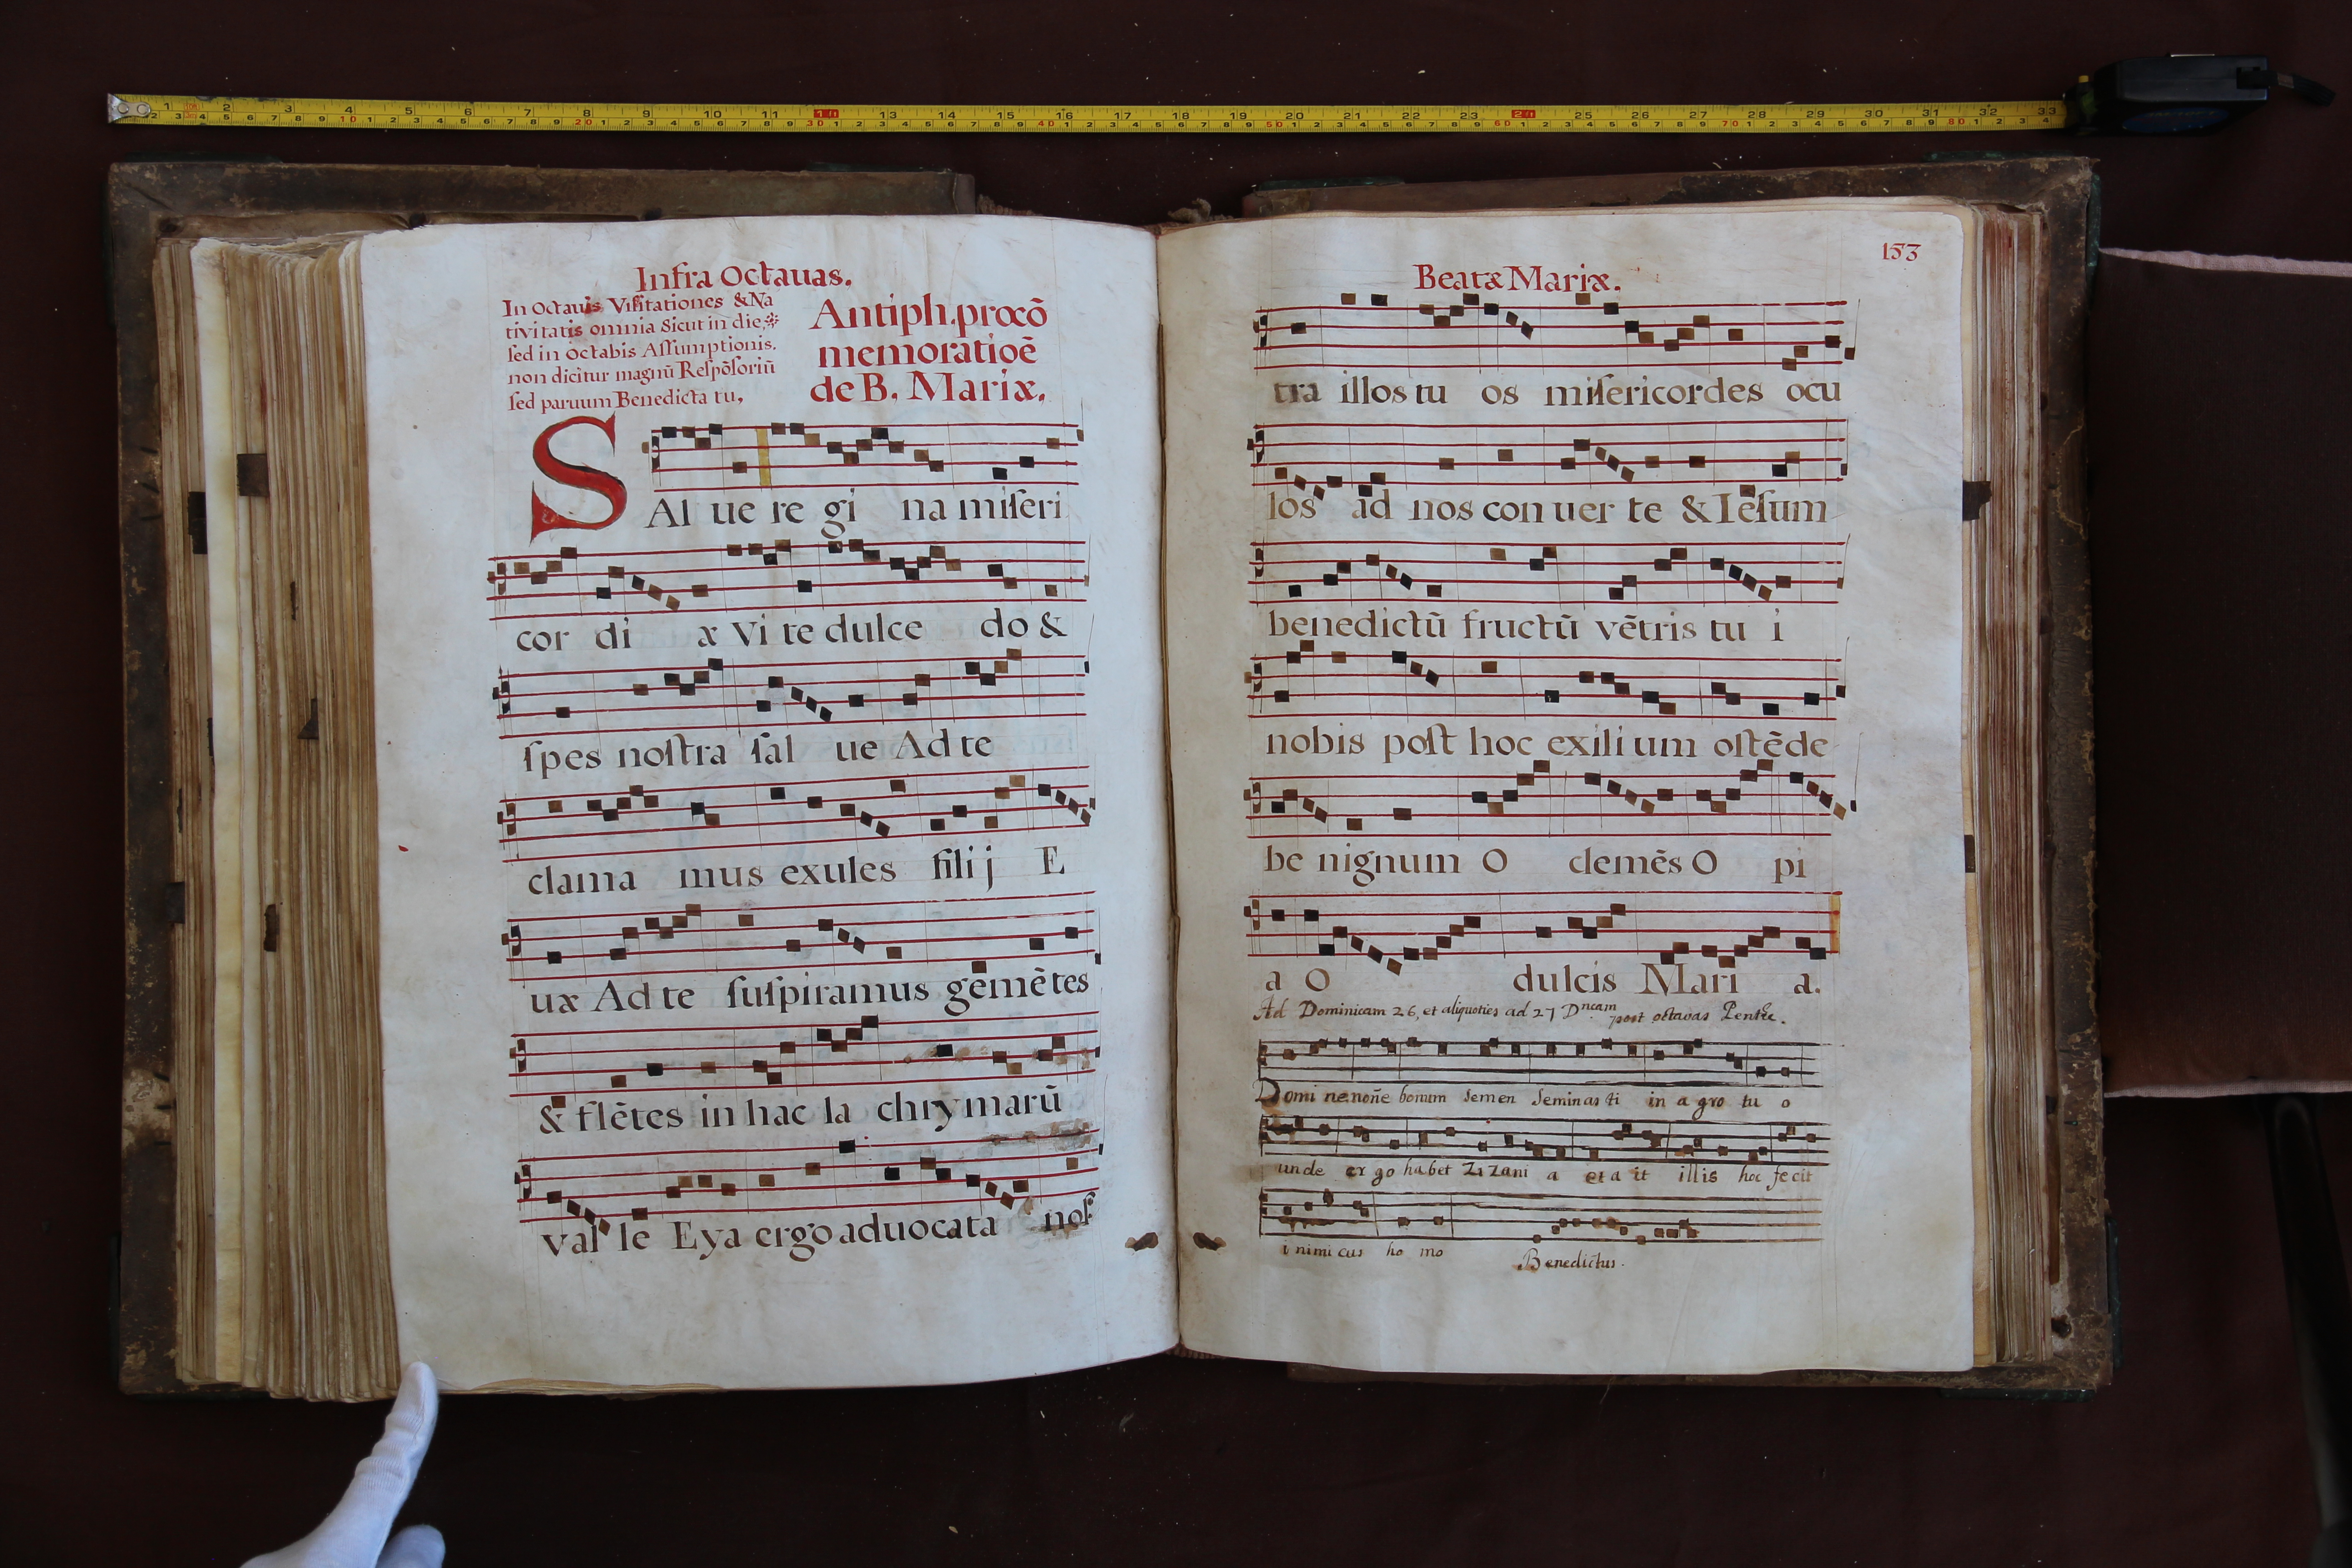 Infra Octauas.
In Octauis Visitationes & Na
tivitatis omnia Sicut in die,
sed in Octabis Assumptionis.
non dicitur magnū Respōsoriū
sed paruum Benedicta tu,
Antiph. procō
memoratioē
de B. Mariæ.
SAl ue re gi na miseri
cor di æ Vi te dulce do &
spes nostra sal ue Ad te
clama mus exules filij E
uæ Ad te suspiramus gemētes
& flētes in hac la chrymarū
val le Eya ergo aduocata nos
153
Beatæ Mariæ.
tra illos tu os misericordes ocu
los ad nos con uer te & Iesum
benedictū fructū vētris tu i
nobis post hoc exili um ostēde
be nignum O clemēs O pi
a O dulcis Mari a.
Ad Dominicam 26, et aliquoties ad 27 Dncam post octavas Pente.
Domi ne nonē bonum semen seminas ti in a gro tu o
unde er go habet Zi Zani a et a it illis hoc fecit
i nimi cus ho mo Benedictus.